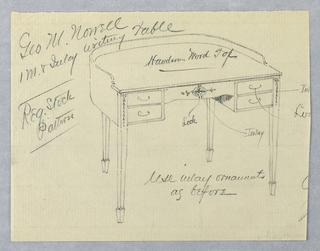 Geo M. Norvell
1 M. & Inlay writing Table
Reg. Stock
Pattern
Handsome Wood Top
Lock
Inlay
Use inlay ornaments
as before